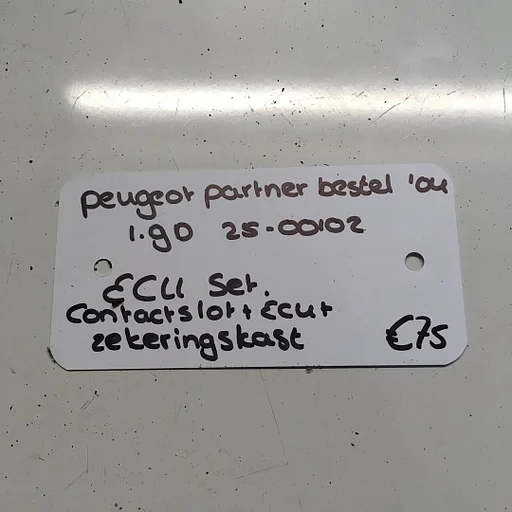 peugeot partner bestel '04
1.9D 25-00102
ECU Set.
Contactslot + Ecu +
zekeringskast €75